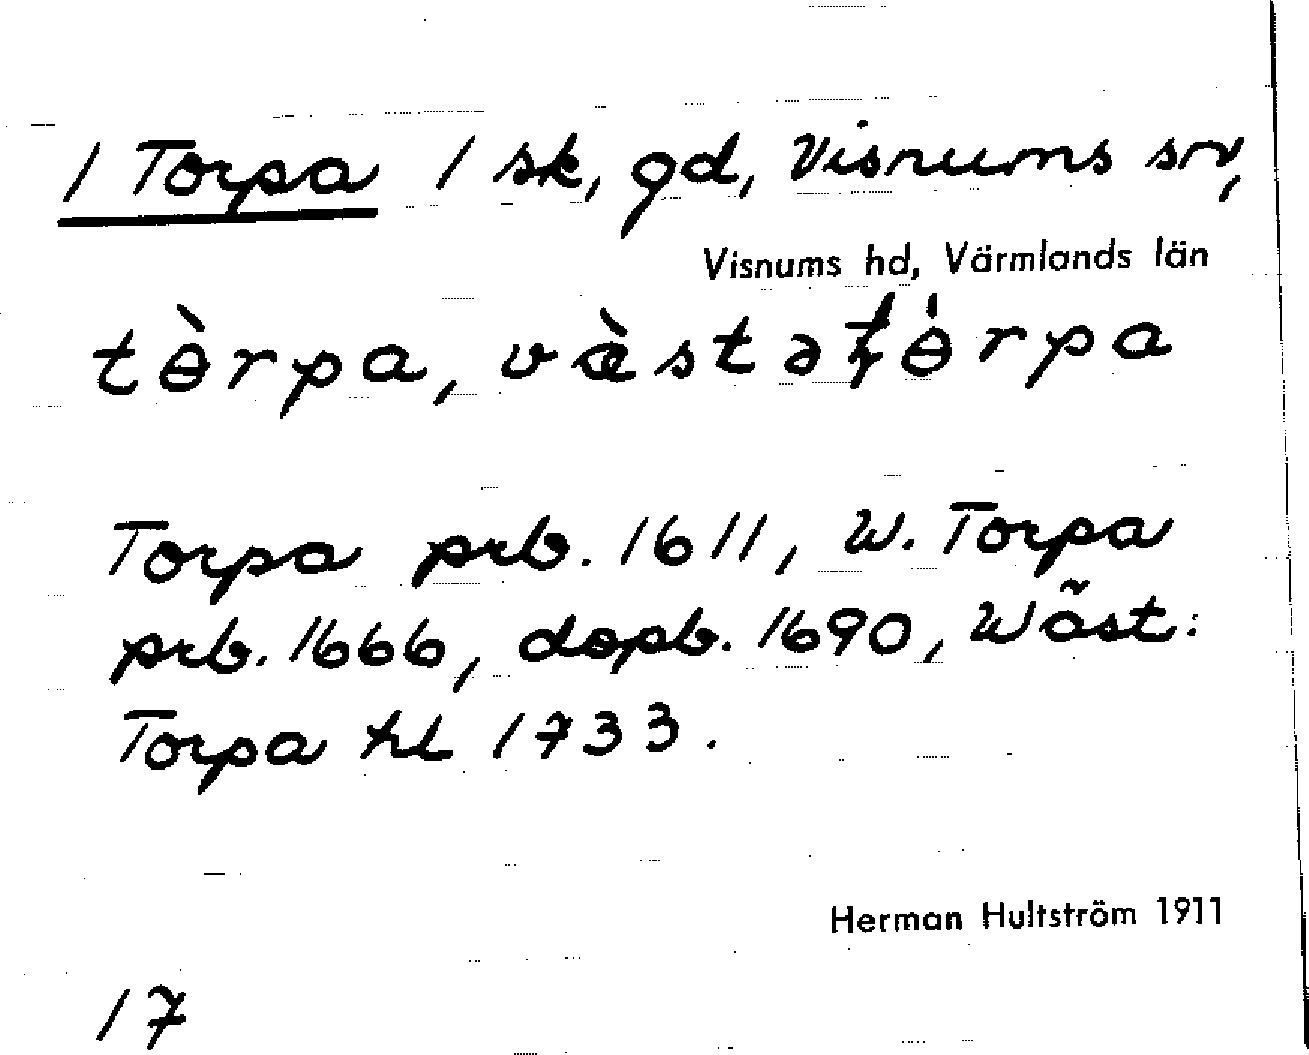 1 Torpa 1 sk, gd, Visnums sn,
Visnums hd, Värmlands län
tɵ̀rpa, væ̀stəţɵ́rpa
Torpa prb. 1611, W. Torpa
prb. 1666, dopb. 1690, Wäst:
Torpa hl 1733.
Herman Hultström 1911
17